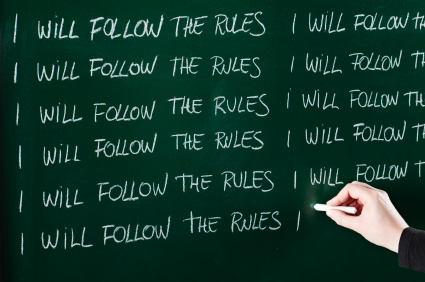 I WILL FOLLOW THE RULES I WILL FOLLOW
I WILL FOLLOW THE RULES I WILL FOLLOW
I WILL FOLLOW THE RULES I WILL FOLLOW
I WILL FOLLOW THE RULES I WILL FOLLOW
I WILL FOLLOW THE RULES I WILL FOLLOW
I WILL FOLLOW THE RULES I